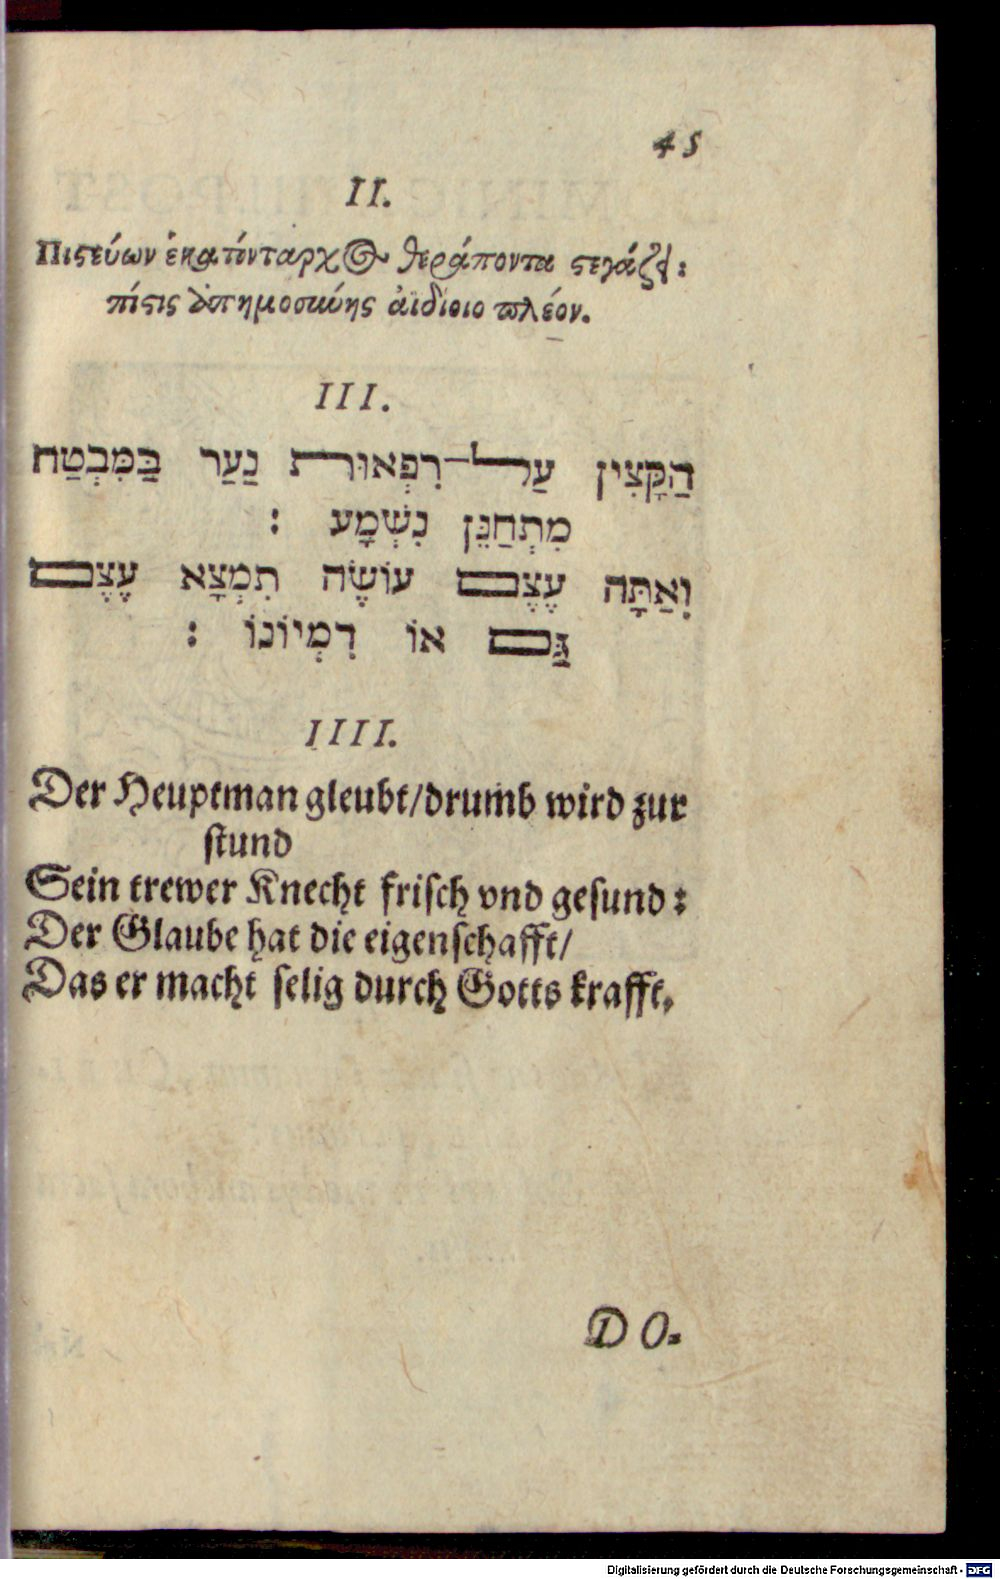 45
II.
Πιϛεύων ἑκατόνταρχος θεράποντα ϛεγάζει:
πίϛις αἰδίοιο πλέον.
III.
הַקָּצִין עַל־רִפְאוּת נַעַר בַּמִּבְטַח
מִתְחַנֵּן נִשְׁמָע :
וְאַתָּה עֶצֶם עוֹשֶׂה תִמְצָא עֶצֶם
גַּם אוֹ דִמְיוֹנוֹ :
IIII.
Der Heuptman gleubt/drumb wird zur
stund
Sein trewer Knecht frisch vnd gesund:
Der Glaube hat die eigenschafft/
Das er macht selig durch Gotts krafft.
DO-
Digitalisierung gefördert durch die Deutsche Forschungsgemeinschaft - DFG